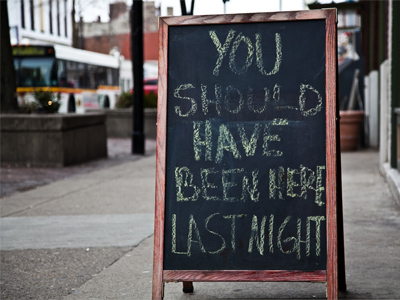 YOU
SHOULD
HAVE
BEEN HERE
LAST NIGHT